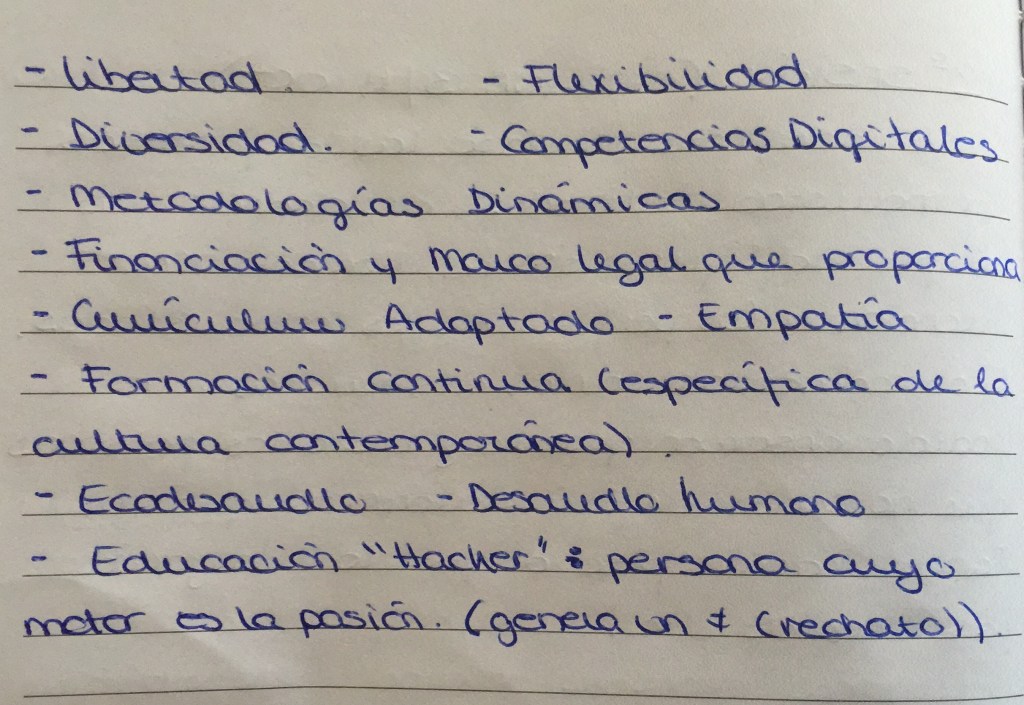 - Libertad. - Flexibilidad
- Diversidad. - Competencias Digitales
- Metodologías Dinámicas
- Financiación y Marco legal que proporciona
- Currículum Adaptado - Empatía
- Formación continua (específica de la
cultura contemporánea).
- Ecodesarrollo - Desarrollo humano
- Educación "Hacker": persona cuyo
motor es la pasión. (genera un ≠ (rechazo)).